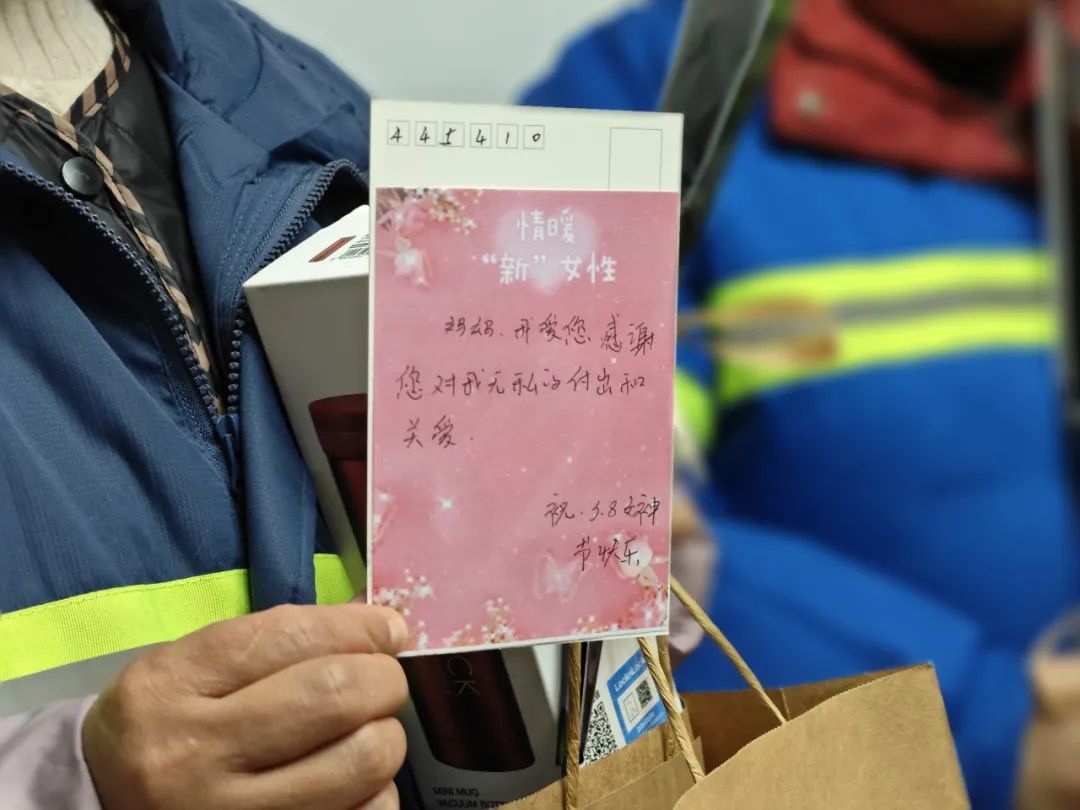 445410
情暖
“新”女性
妈妈.我爱您.感谢
您对我无私的付出和
关爱.
祝.3.8女神
节快乐
LocknLock
CK
MINI MUG
VACUUM BOTT